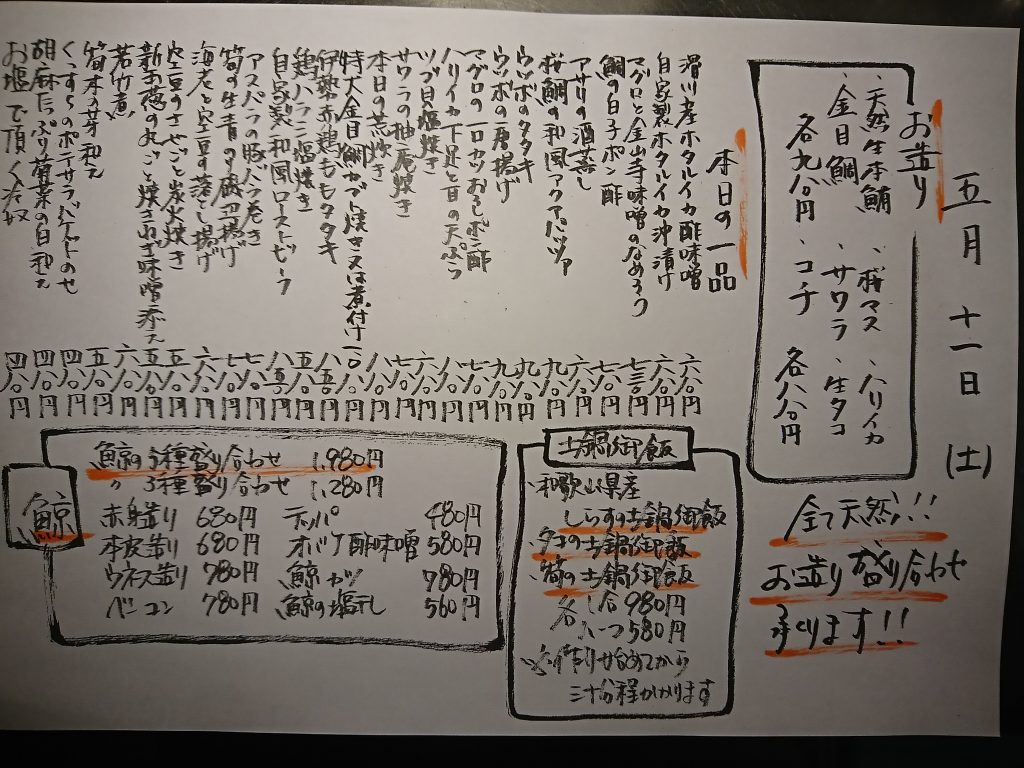 五月 十一日 (土)
お造り
、天然生本鮪 、桜マス 、ハリイカ
、金目鯛 、サワラ 、生タコ
各九八〇円 、コチ 各八八〇円
全て天然!!
お造り盛り合わせ
承ります!!
本日の一品
滑川産ホタルイカ酢味噌 六八〇円
自家製ホタルイカ沖漬け 六八〇円
マグロと金山寺味噌のなめろう 七三〇円
鯛の白子ポン酢 七八〇円
アサリの酒蒸し 六八〇円
桜鯛の和風アクアパッツァ 九八〇円
ウツボのタタキ 九八〇円
ウツボの唐揚げ 九八〇円
マグロの一口カツおろしポン酢 七八〇円
ハリイカ下足と旬の天ぷら
ツブ貝塩焼き
サワラの柚庵焼き
本日の荒炊き
特大金目鯛カブト焼き又は煮付け
伊勢赤鶏ももタタキ
鶏ハラミ塩焼き
自家製和風ローストビーフ
アスパラの豚バラ巻き
筍の生青のり磯辺揚げ
海老と空豆の落とし揚げ 六八〇円
空豆のさやごと炭火焼き 五八〇円
新玉葱の丸ごと焼きねぎ味噌添え 五八〇円
若竹煮 六八〇円
筍木の芽和え 五八〇円
くずし豆ふのポテサラバケットのせ 四八〇円
胡麻たっぷり菊菜の白和え 四八〇円
お塩で頂く冷奴 四八〇円
土鍋御飯
、和歌山県産
しらすの土鍋御飯
、タコの土鍋御飯
、筍の土鍋御飯
各 一合 980円
ハーフ 580円
※作り始めてから
三十分程かかります
鯨
鯨の5種盛り合わせ 1,980円
〃 3種盛り合わせ 1,280円
赤身造り 680円 テッパ 480円
本皮造り 680円 オバケ酢味噌 580円
ウネス造り 780円 鯨カツ 780円
ベーコン 780円 鯨の塩干し 560円